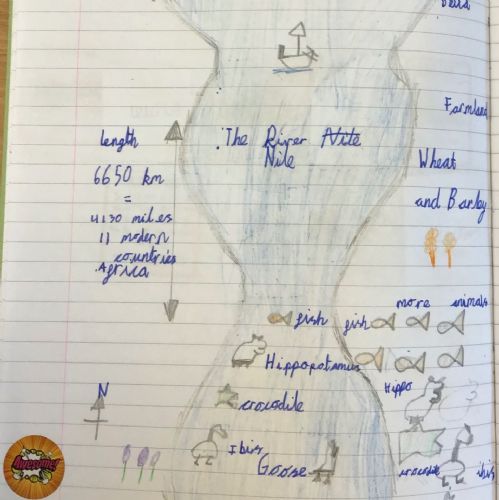 Farmland
The River Nile
Nile
length
6650 km
=
4130 miles
11 modern
countries
Africa
Wheat
and Barley
more animals
fish
fish
Hippopotamus
Hippo
crocodile
N
Ibis
Goose
crocodile
ibis
Awesome!